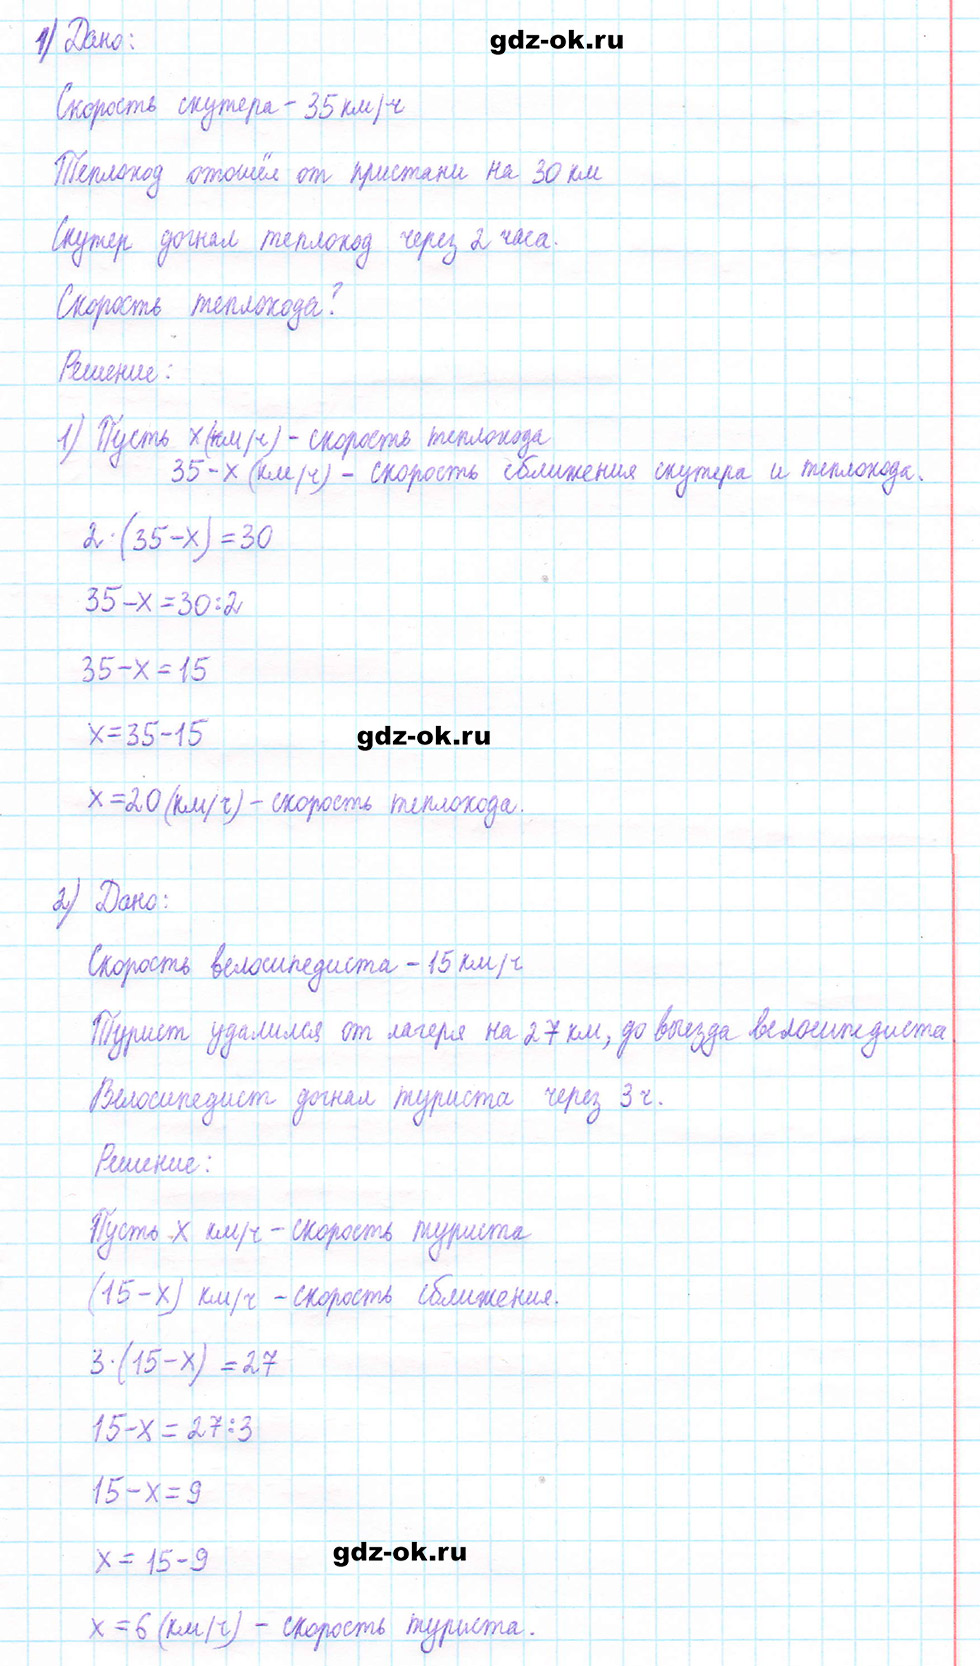 1) Дано:
gdz-ok.ru
Скорость скутера - 35 км/ч
Теплоход отошёл от пристани на 30 км
Скутер догнал теплоход через 2 часа.
Скорость теплохода?
Решение:
1) Пусть x (км/ч) - скорость теплохода
35-x (км/ч) - скорость сближения скутера и теплохода.
2·(35-x)=30
35-x=30:2
35-x=15
x=35-15
gdz-ok.ru
x=20 (км/ч) - скорость теплохода.
2) Дано:
Скорость велосипедиста - 15 км/ч
Турист удалился от лагеря на 27 км, до выезда велосипедиста
Велосипедист догнал туриста через 3 ч.
Решение:
Пусть x км/ч - скорость туриста
(15-x) км/ч - скорость сближения.
3·(15-x)=27
15-x=27:3
15-x=9
x=15-9
gdz-ok.ru
x=6 (км/ч) - скорость туриста.